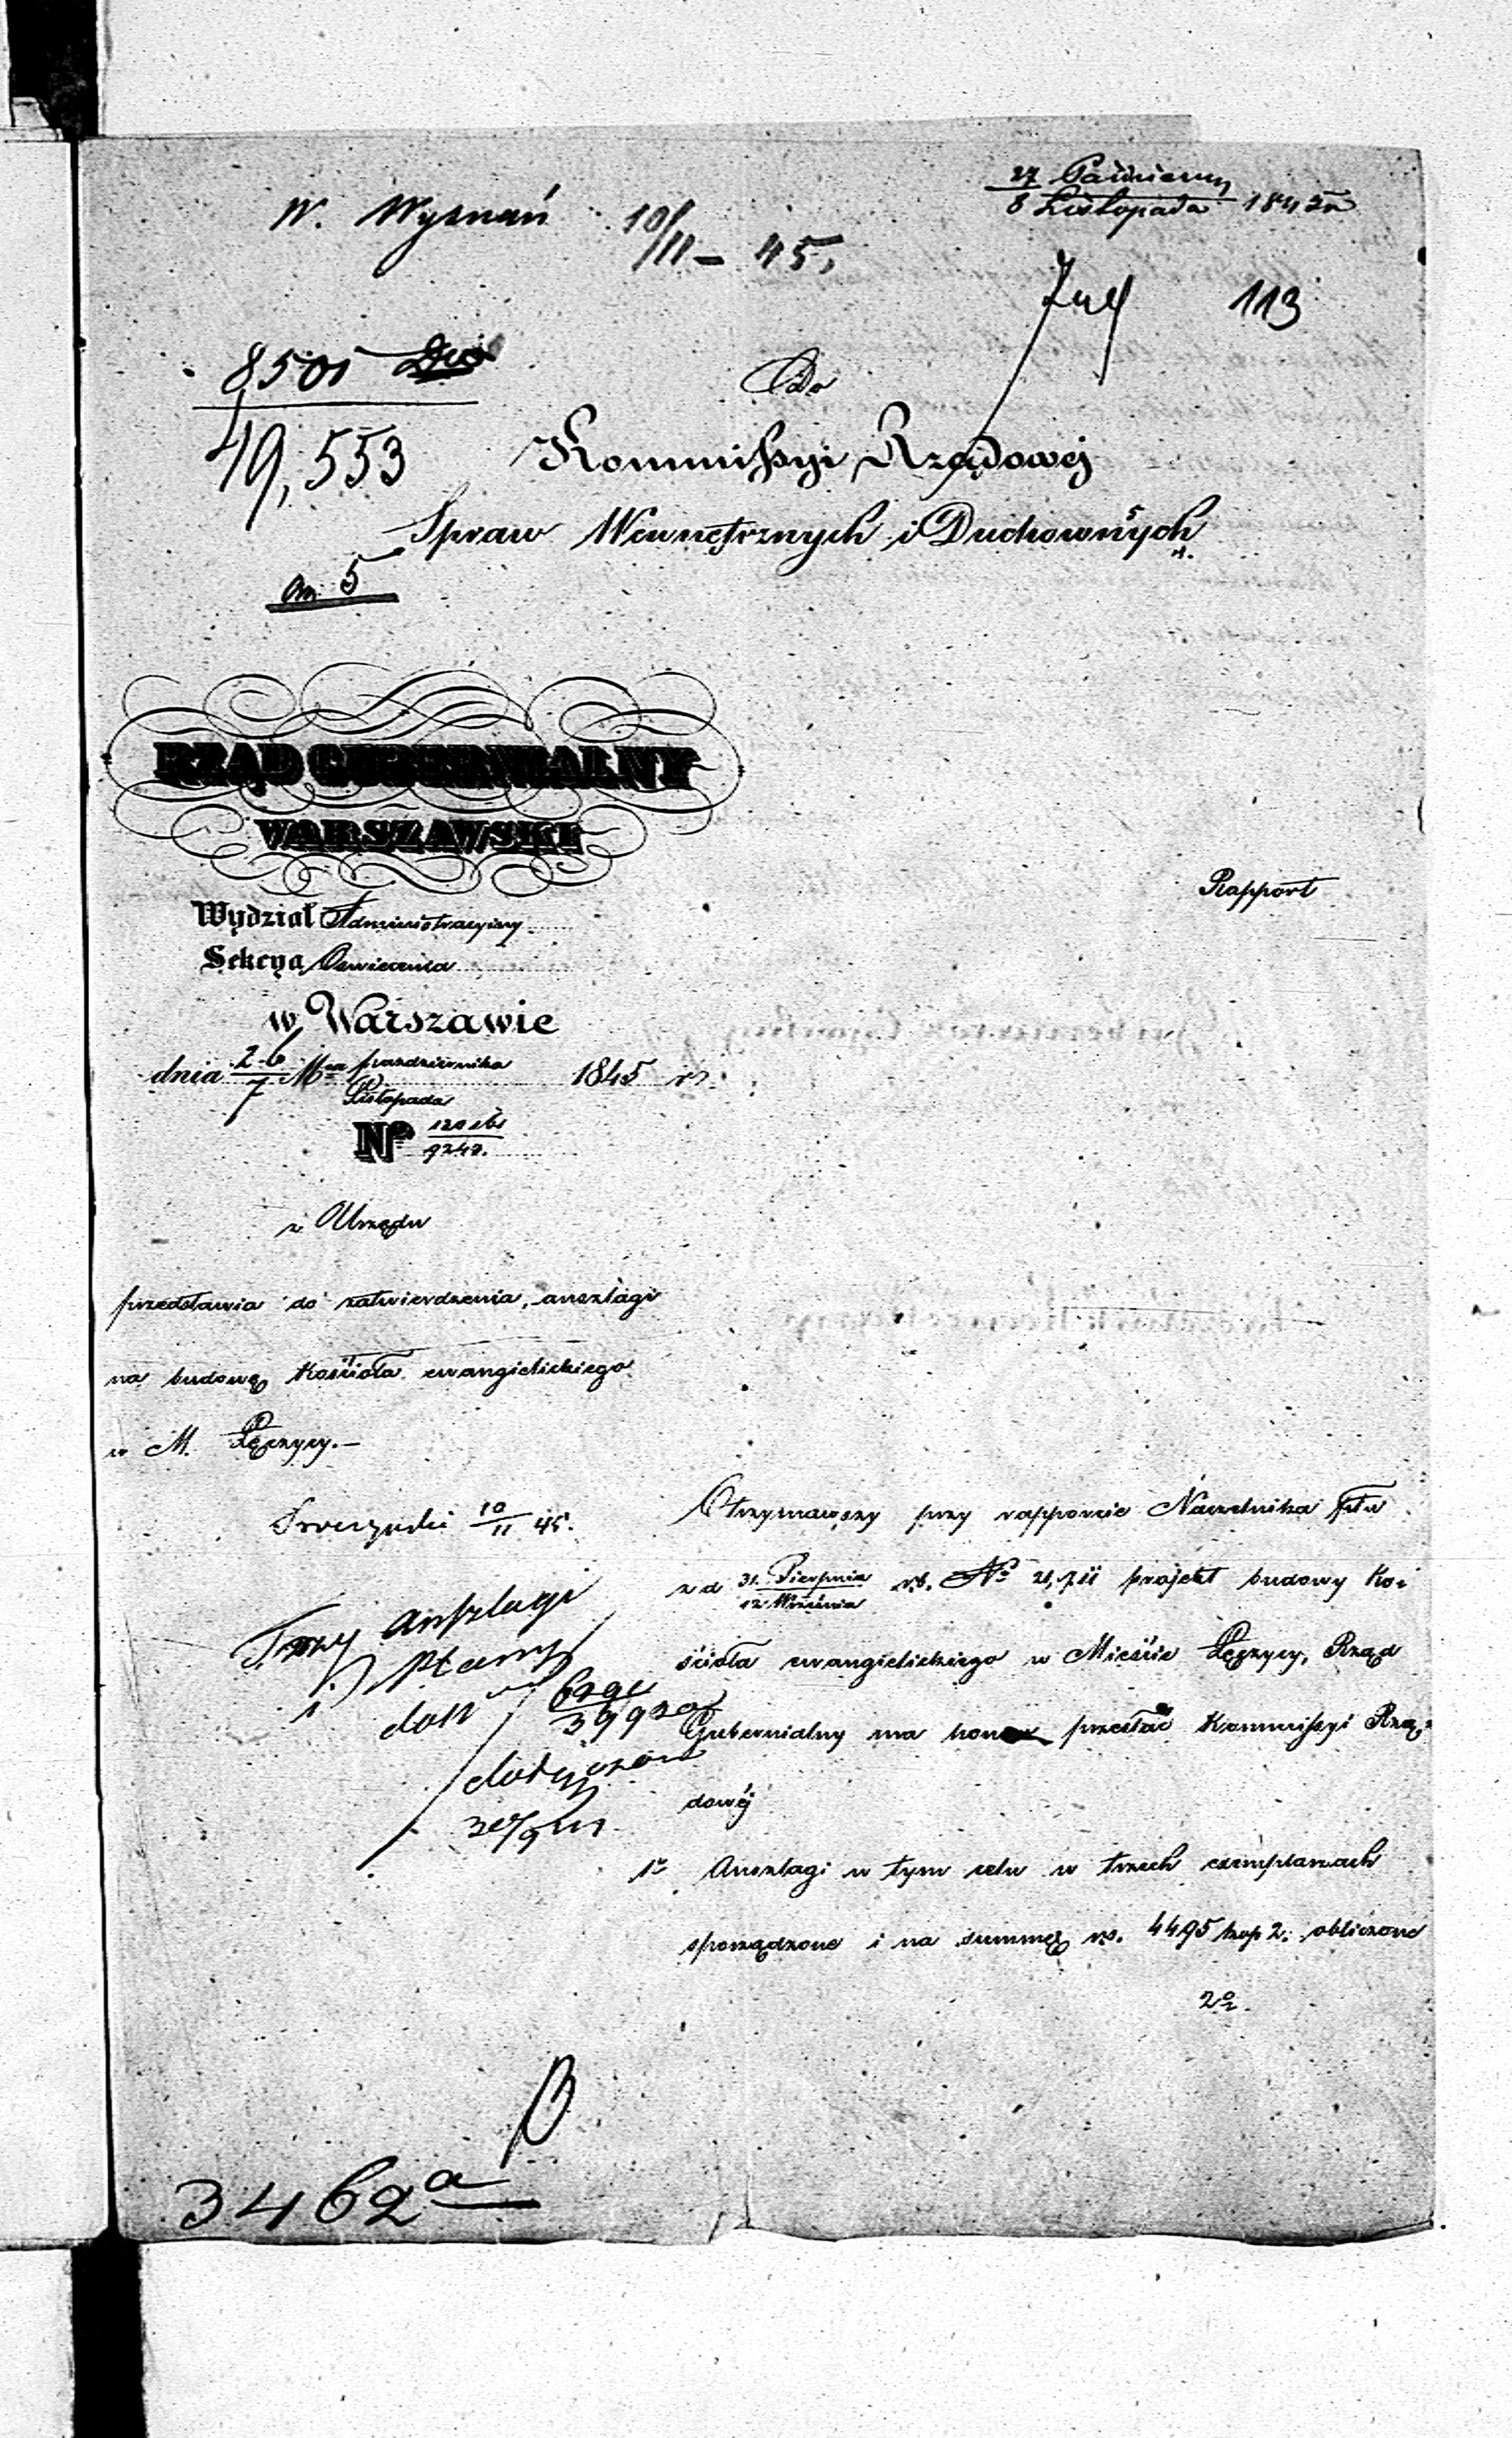 27 Paździer.
8 Listopada 1845 r
W. Wyznań 10/11 – 45.
113
8501
49,553
Do
Kommissyi Rządowéj
Spraw Wewnętrznych i Duchownych
an. 5
RZĄD GUBERNIALNY
WARSZAWSKI
Rapport
Wydział Administracyiny
Sekcya Oswiecenia
w Warszawie
dnia 26/7 Mca pazdziernika/Listopada 1845 r.
No
9247.
z Urzędu
przedstawia do zatwierdzenia, anszlagi
na budowę Kościoła ewangielickiego
w M. Łęczycy.–
10/11 45.
Otrzymawszy przy rapporcie Naczelnika Ptu
z d 31. Sierpnia/12 Września rb. No projekt budowy Ko-
ścioła ewangielickiego w Mieście Łęczycy, Rząd
Gubernialny ma honor przesłać Kommissyi Rzą-
dowéj
1o Anszlagi w tym celu w trzech exemplarzach
sporządzone i na summę rs. 4495 kop 2. obliczone
2o
Trzy Anszlagi
i plany
3462a